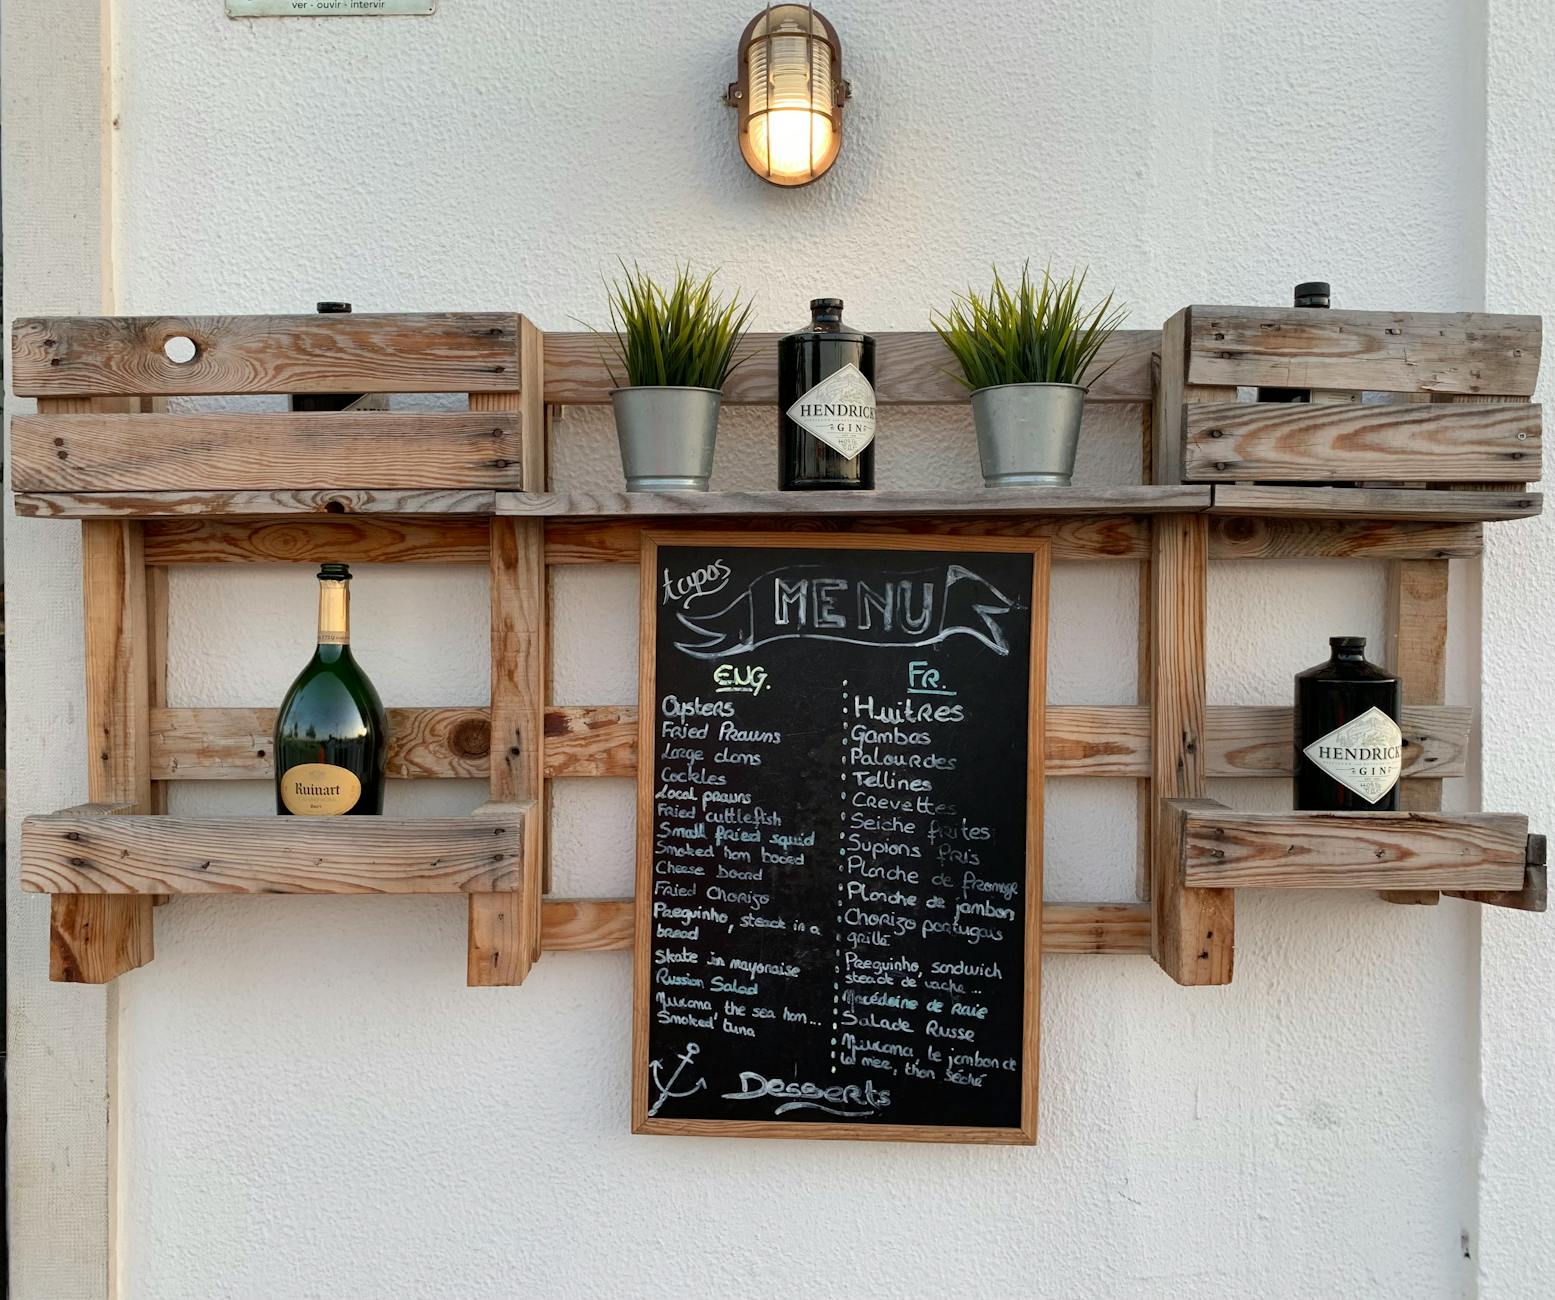 ver - ouvir - intervir
HENDRICK
GIN
Tapas
MENU
ENG.
Oysters
Fried Prawns
Large clams
Cockles
Local prawns
Fried cuttlefish
Small fried squid
Smoked ham board
Cheese board
Fried Chorizo
Preguinho, steack in a
bread
Skate in mayonaise
Russian Salad
Muxama, the sea ham...
Smoked tuna
FR.
Huitres
Gambas
Palourdes
Tellines
Crevettes
Seiche frites
Supions fris
Planche de fromage
Planche de jambon
Chorizo portugais
grillé
Preguinho, sandwich
steack de vache...
Macédoine de raie
Salade Russe
Muxama le jambon de
la mer, thon séché
Desserts
Ruinart
BRUT
HENDRICK
GIN